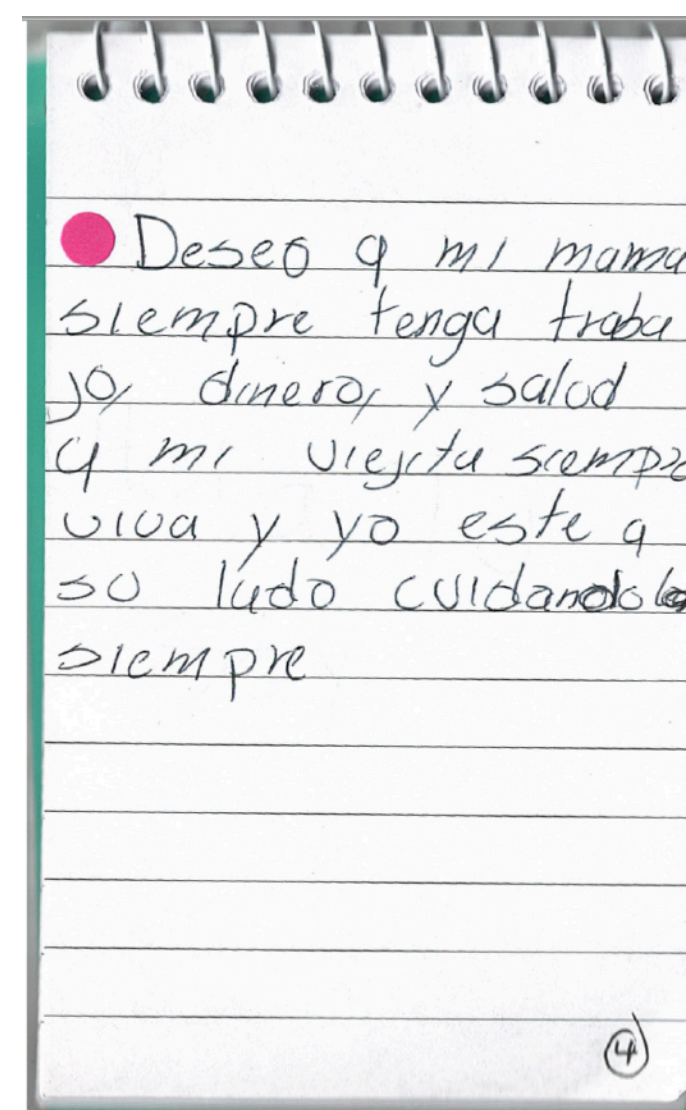 Deseo q mi mama
siempre tenga traba
jo, dinero, y salud
q mi viejita siempre
viva y yo este a
su lado cuidandola
siempre
4